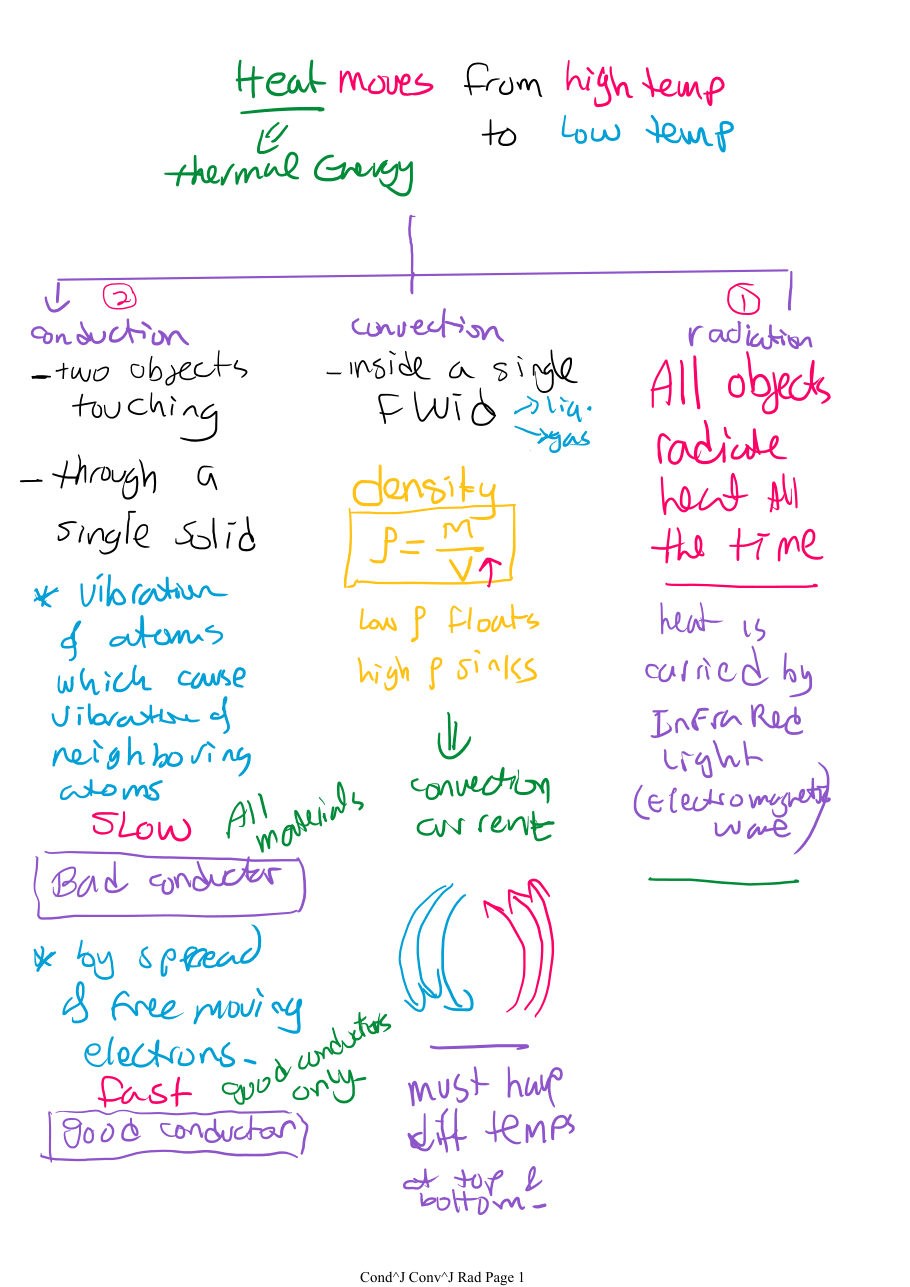 Heat moves from high temp
to low temp
thermal Energy
②
conduction
- two objects
touching
- through a
single solid
* vibration
of atoms
which cause
vibration of
neighboring
atoms
SLOW
All
materials
Bad conductor
* by spread
of free moving
electrons-
fast
good conductors
only
good conductor
convection
- inside a single
FLUID → liq.
→ gas
density
ρ = M/V ↑
low ρ floats
high ρ sinks
⇓
convection
current
must have
diff temps
at top &
bottom-
①
radiation
All objects
radiate
heat All
the time
heat is
carried by
InFraRed
Light
(Electromagnetic
wave)
Cond^J Conv^J Rad Page 1